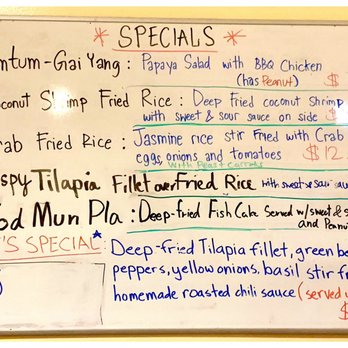 * SPECIALS *
ntum-Gai Yang : Papaya Salad with BBQ Chicken
(has Peanut) $
oconut Shrimp Fried Rice : Deep Fried coconut shrimp
with sweet & sour sauce on side $
rab Fried Rice : Jasmine rice stir fried with Crab
eggs, onions and tomatoes $12.
with Peas & Carrots
spy Tilapia Fillet over Fried Rice with sweet & sour
od Mun Pla : Deep-fried Fish Cake Served w/ sweet & s
and Peanu
'S SPECIAL* : Deep-fried Tilapia fillet, green be
peppers, yellow onions, basil stir f
homemade roasted chili sauce (served
$